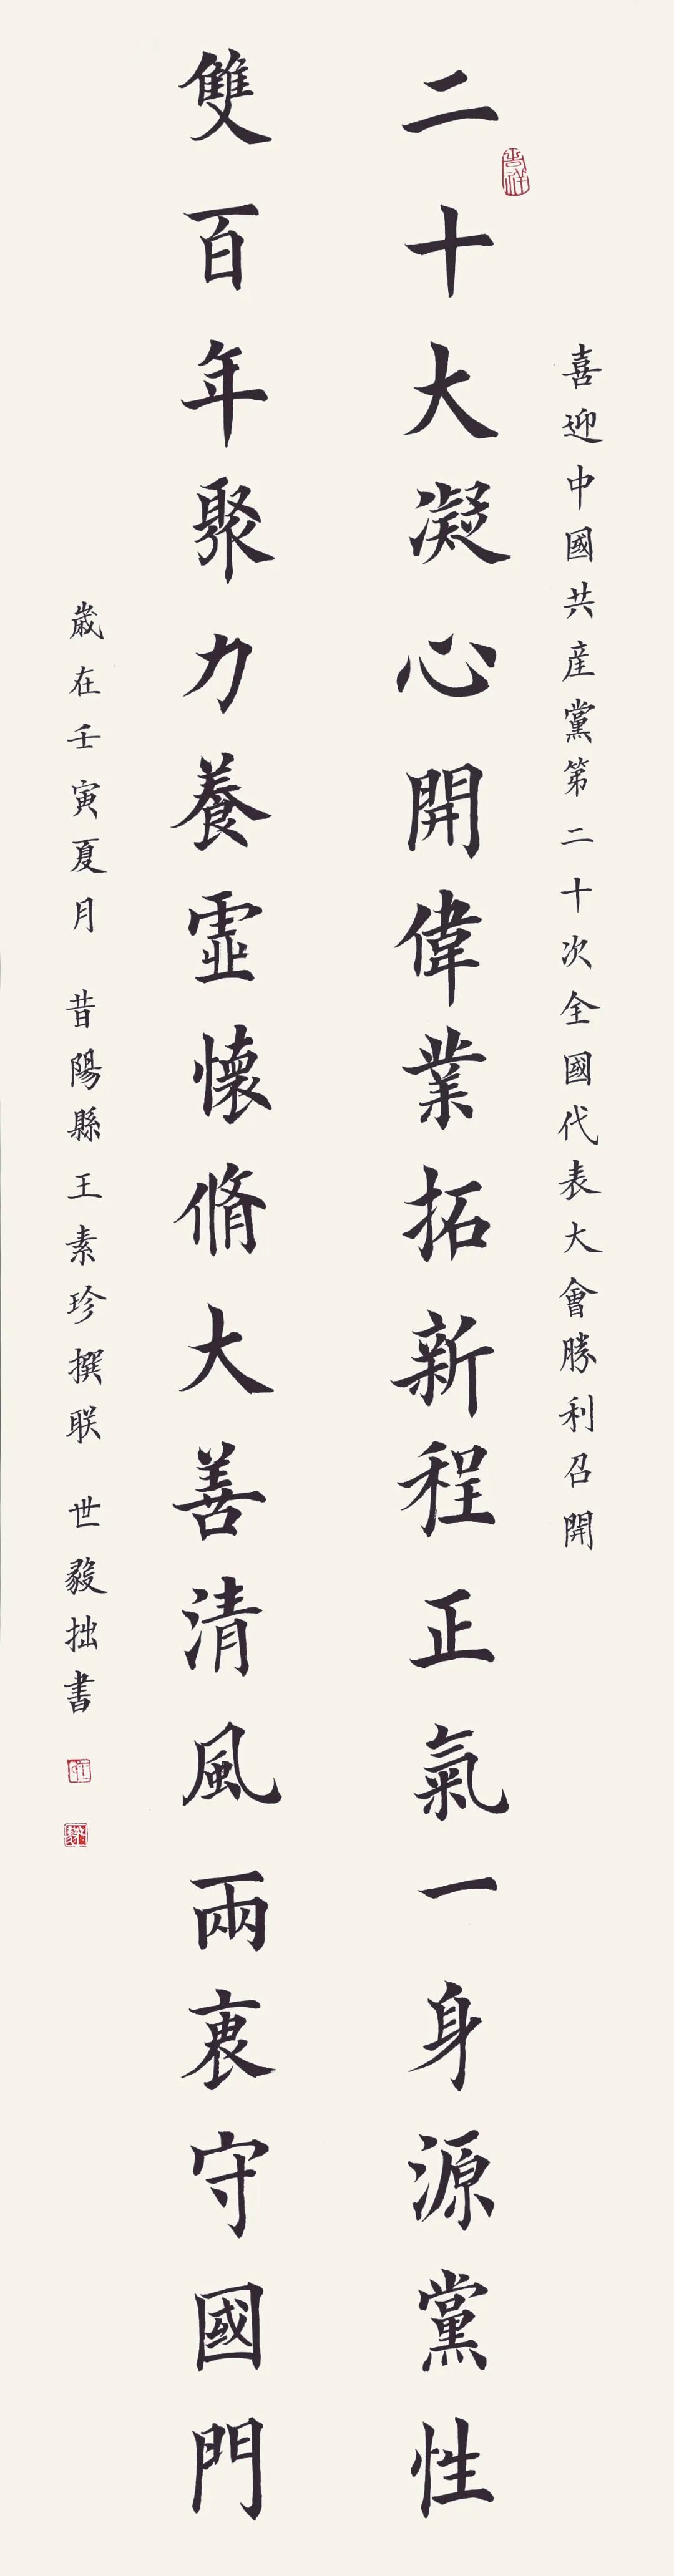 喜迎中國共産黨第二十次全國代表大會勝利召開
吉祥
二十大凝心開偉業拓新程正氣一身源黨性
雙百年聚力養虛懷脩大善清風兩裏守國門
歲在壬寅夏月 昔陽縣王素珍撰联 世毅拙書